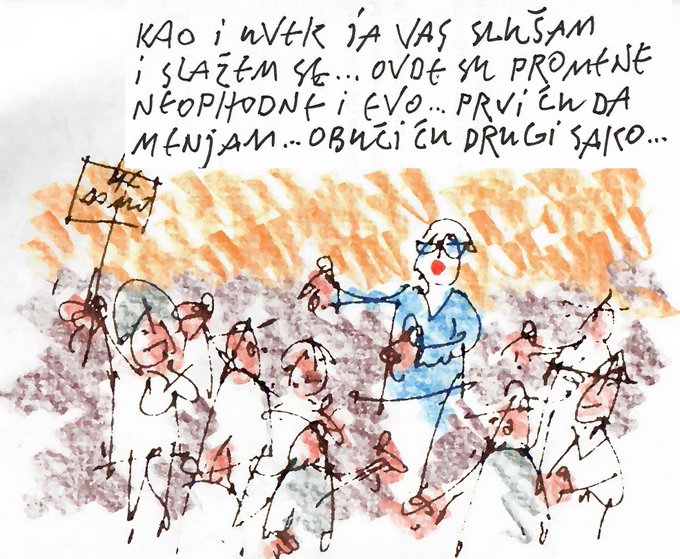 KAO I UVEK JA VAS SLUŠAM
I SLAŽEM SE... OVDE SU PROMENE
NEOPHODNE I EVO... PRVI ĆU DA
MENJAM... OBUĆI ĆU DRUGI SAKO...